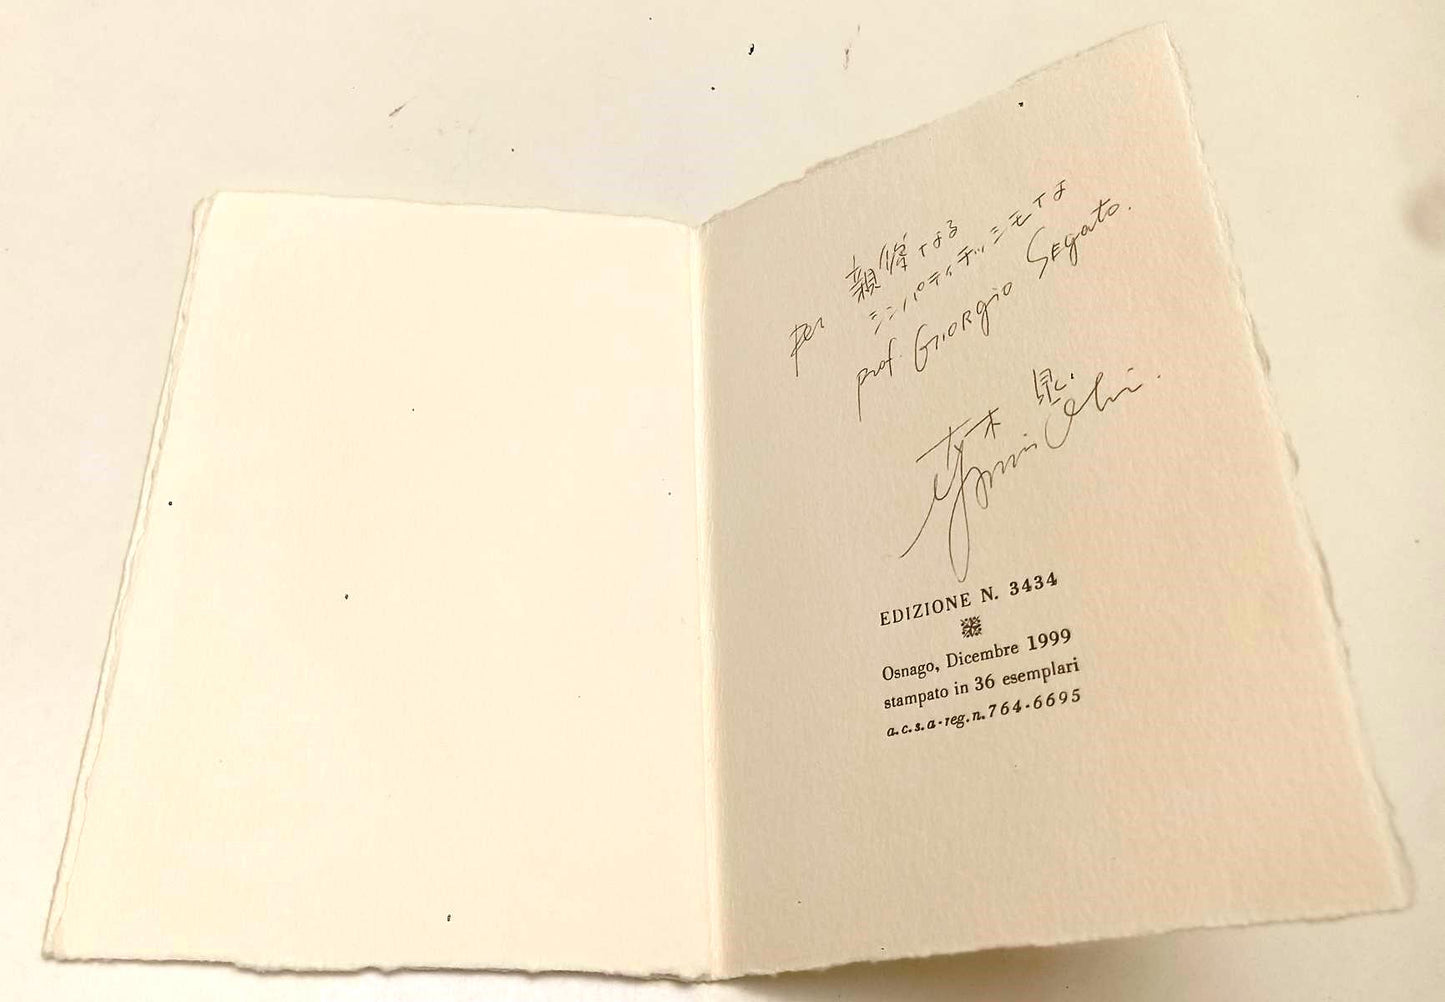 per 親愛なる
シンパティチッシモな
prof. GIORgio SEgato.
EDIZIONE N. 3434
Osnago, Dicembre 1999
stampato in 36 esemplari
a.c.s.a-reg.n.764-6695